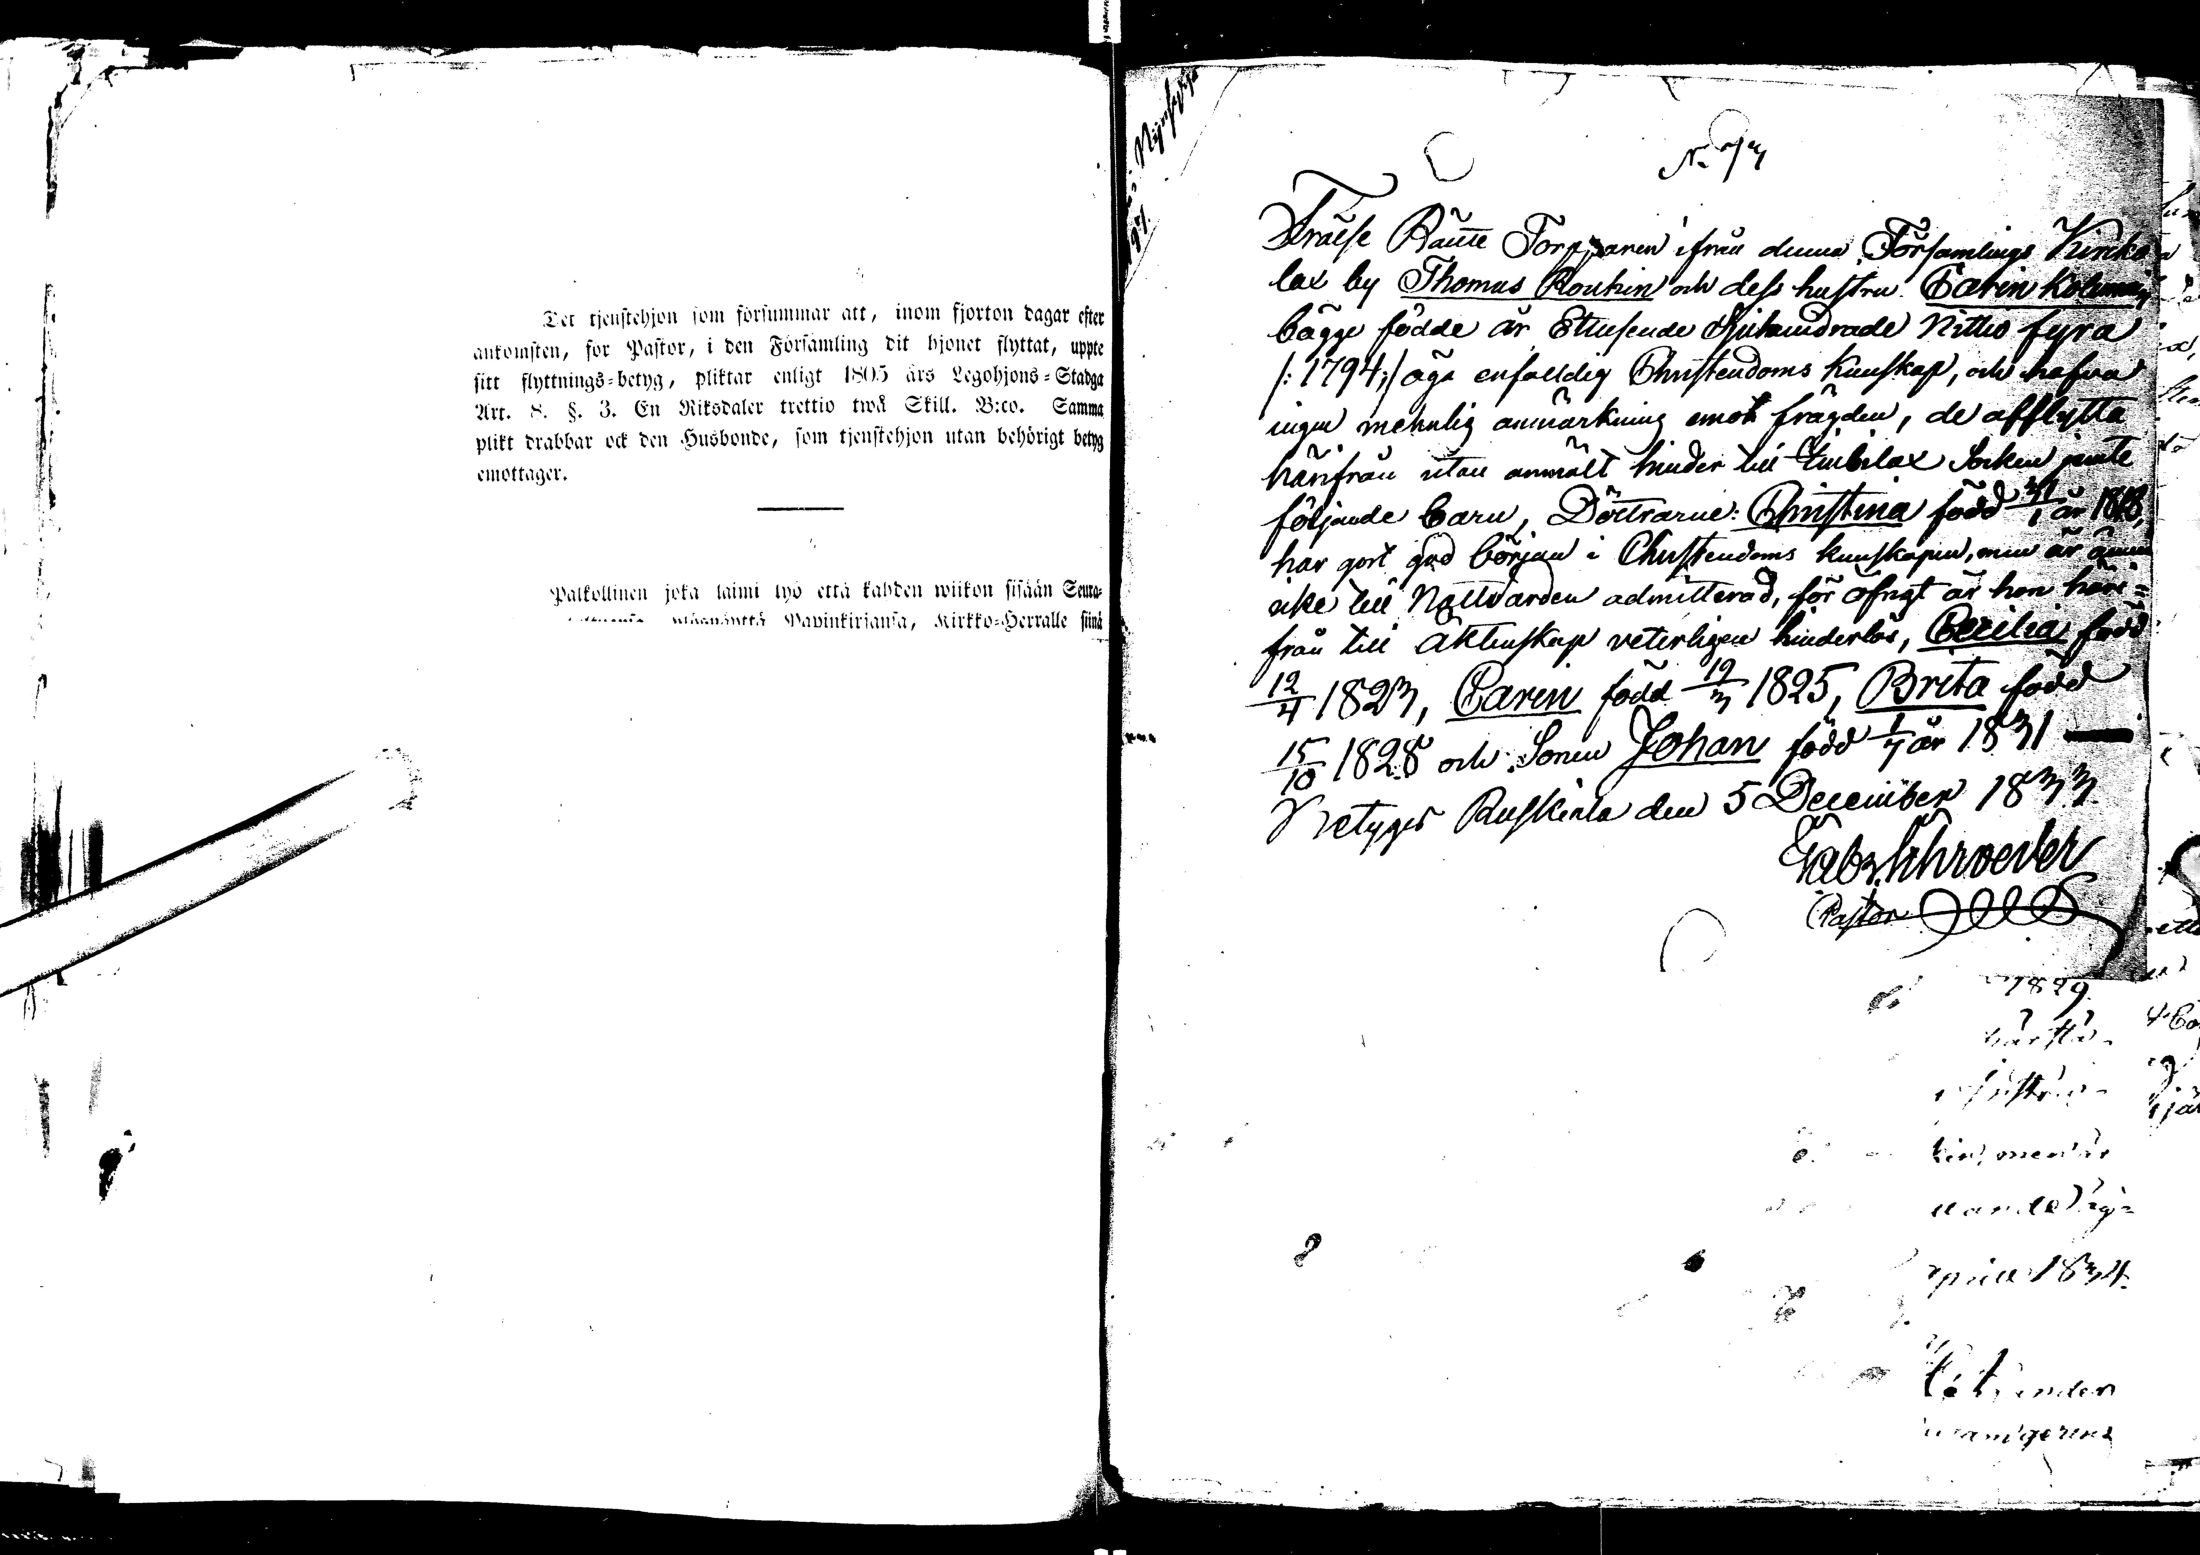 Det tjenstehjon som försummar att, inom fjorton dagar efter
ankomsten, för Pastor, i den Församling dit hjonet flyttat, uppte
sitt flyttnings-betyg, pliktar enligt 1805 års Legohjons-Stadga
Art. 8. §. 3. En Riksdaler trettio twå Skill. B:co. Samma
plikt drabbar ock den Husbonde, som tjenstehjon utan behörigt betyg
emottager.
Palkollinen joka laimi lyö että kahden wiikon sisään Seura-
Papinkirjansa, Kirkko-Herralle siinä
Torpparen ifrån denna Församlings
lax by Thomas Roukin och dess hustru Carin
bägge födde år Ettusende Sjuhundrade Nittio fyra
/: 1794:/ äga enfalldig Christendoms kunskap, och hafva
ingen anmärkning emot frägden, de afflytta
härifrån utan anmält hinder till Socken jemte
följande barn, Döttrarne: Christina född år 1818,
har gort god början i Christendoms kunskapen, men är ännu
icke till Nattvarden admitterad, för öfrigt är hon häri=
från till äktenskap veterligen hinderlös, Cecilia född
12/4 1823, Carin född 19/3 1825, Brita född
15/10 1828 och Sonen Johan född 1/7 år 1831
Betyges Ruskiala den 5 December 1833.
Schroeder
Pastor
1829
men är
1834.